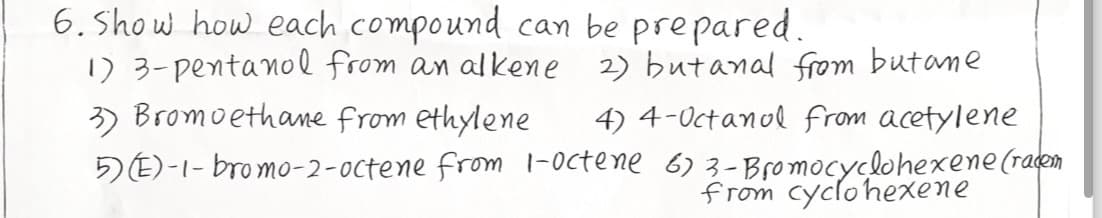 6. Show how each compound can be prepared.
1) 3-pentanol from an alkene 2) butanal from butane
3) Bromoethane from ethylene 4) 4-Octanol from acetylene
5) (E)-1-bromo-2-octene from 1-octene 6) 3-Bromocyclohexene (racem
from cyclohexene